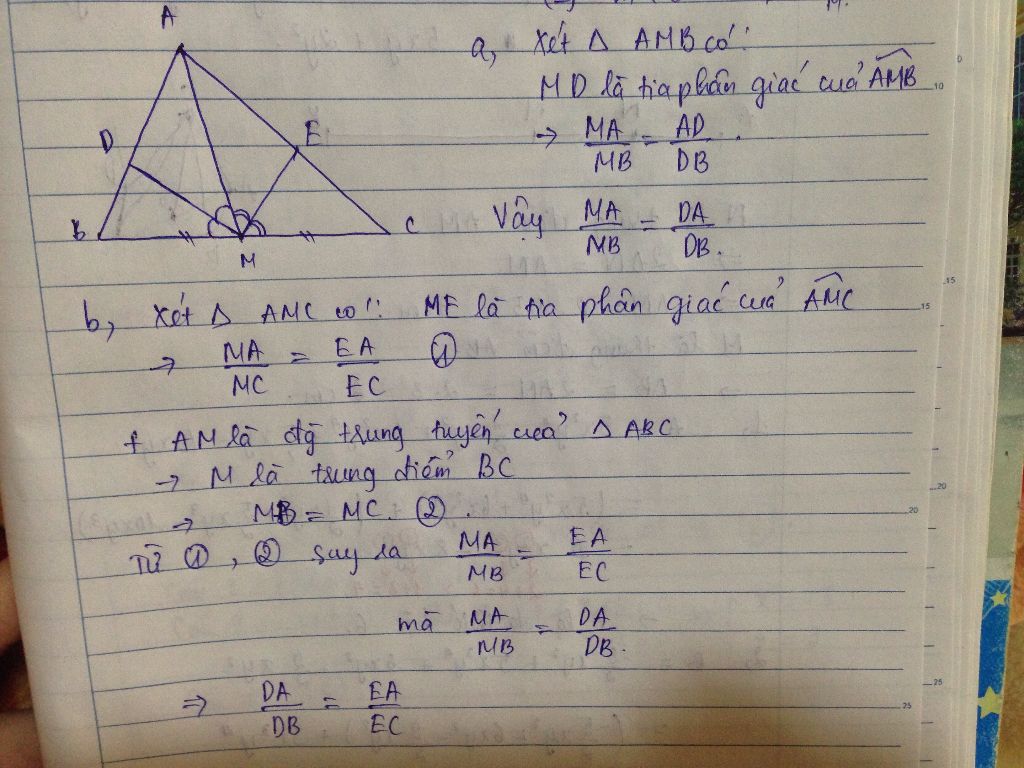 A
D
E
B
M
C
a, Xét Δ AMB có:
MD là tia phân giác của AMB
→ MA/MB = AD/DB.
Vậy MA/MB = DA/DB.
b, Xét Δ AMC có: ME là tia phân giác của AMC
→ MA/MC = EA/EC ①
+ AM là đg trung tuyến của Δ ABC
→ M là trung điểm BC
→ MB = MC. ②.
Từ ①, ② suy ra MA/MB = EA/EC
mà MA/MB = DA/DB.
⇒ DA/DB = EA/EC
10
15
15
20
20
25
25